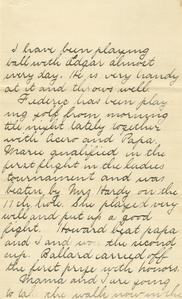 I have been playing
ball with Edgar almost
every day. He is very handy
at it and throws well.
Frederic has been play
ing golf from morning
till night lately together
with Cicero and Papa.
Marie qualified in the
first flight in the ladies
tournament and was
beaten by Mrs Hardy on the
17th hole. She played very
well and put up a good
fight. Howard beat papa
and I and won the second
cup. Ballard carried off
the first prize with honors.
Mama and I are going
to the walk now in the